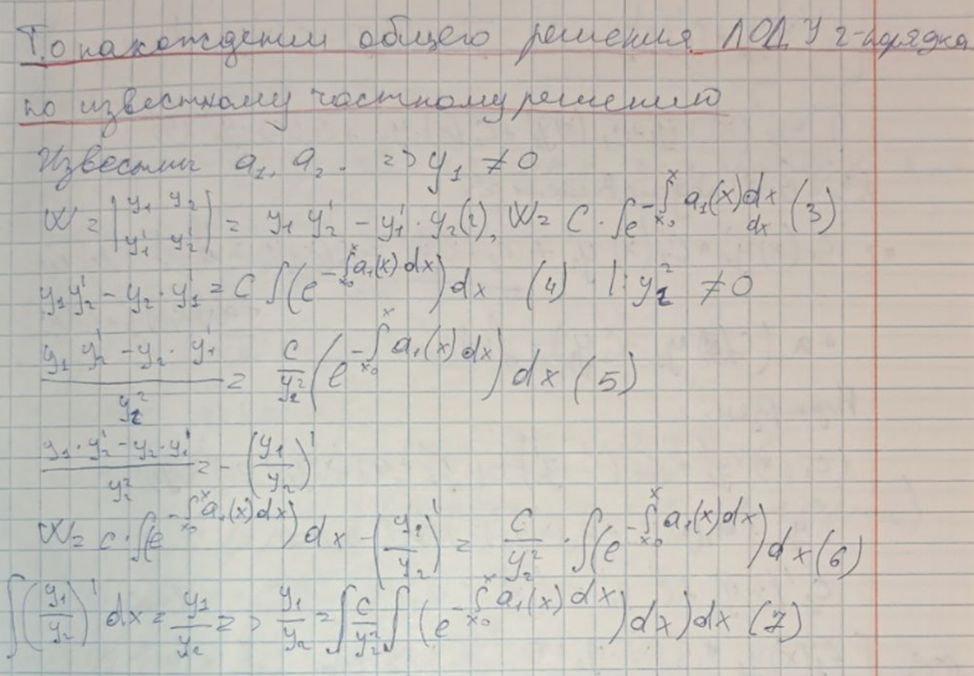 Т. о нахождении общего решения ЛОДУ 2-порядка
по известному частному решению
Известны a₁, a₂. => y₁ ≠ 0
W = |y₁ y₂; y₁' y₂'| = y₁ y₂' - y₁' · y₂ (2), W = C · ∫e^(-∫_{x₀}^{x} a₁(x)dx) dx (3)
y₁y₂' - y₂ · y₁' = C ∫(e^(-∫_{x₀}^{x} a₁(x)dx))dx (4) |: y₂² ≠ 0
(y₁ y₂' - y₂ · y₁')/y₂² = C/y₂² (e^(-∫_{x₀}^{x} a₁(x)dx))dx (5)
(y₁ · y₂' - y₂ · y₁')/y₂² = -(y₁/y₂)'
W = C · ∫(e^(-∫_{x₀}^{x} a₁(x)dx))dx -(y₁/y₂)' = C/y₂² · ∫(e^(-∫_{x₀}^{x} a₁(x)dx))dx (6)
∫(y₁/y₂)' dx = y₁/y₂ => y₁/y₂ = ∫C/y₂² ∫(e^(-∫_{x₀}^{x} a₁(x)dx))dx)dx (7)